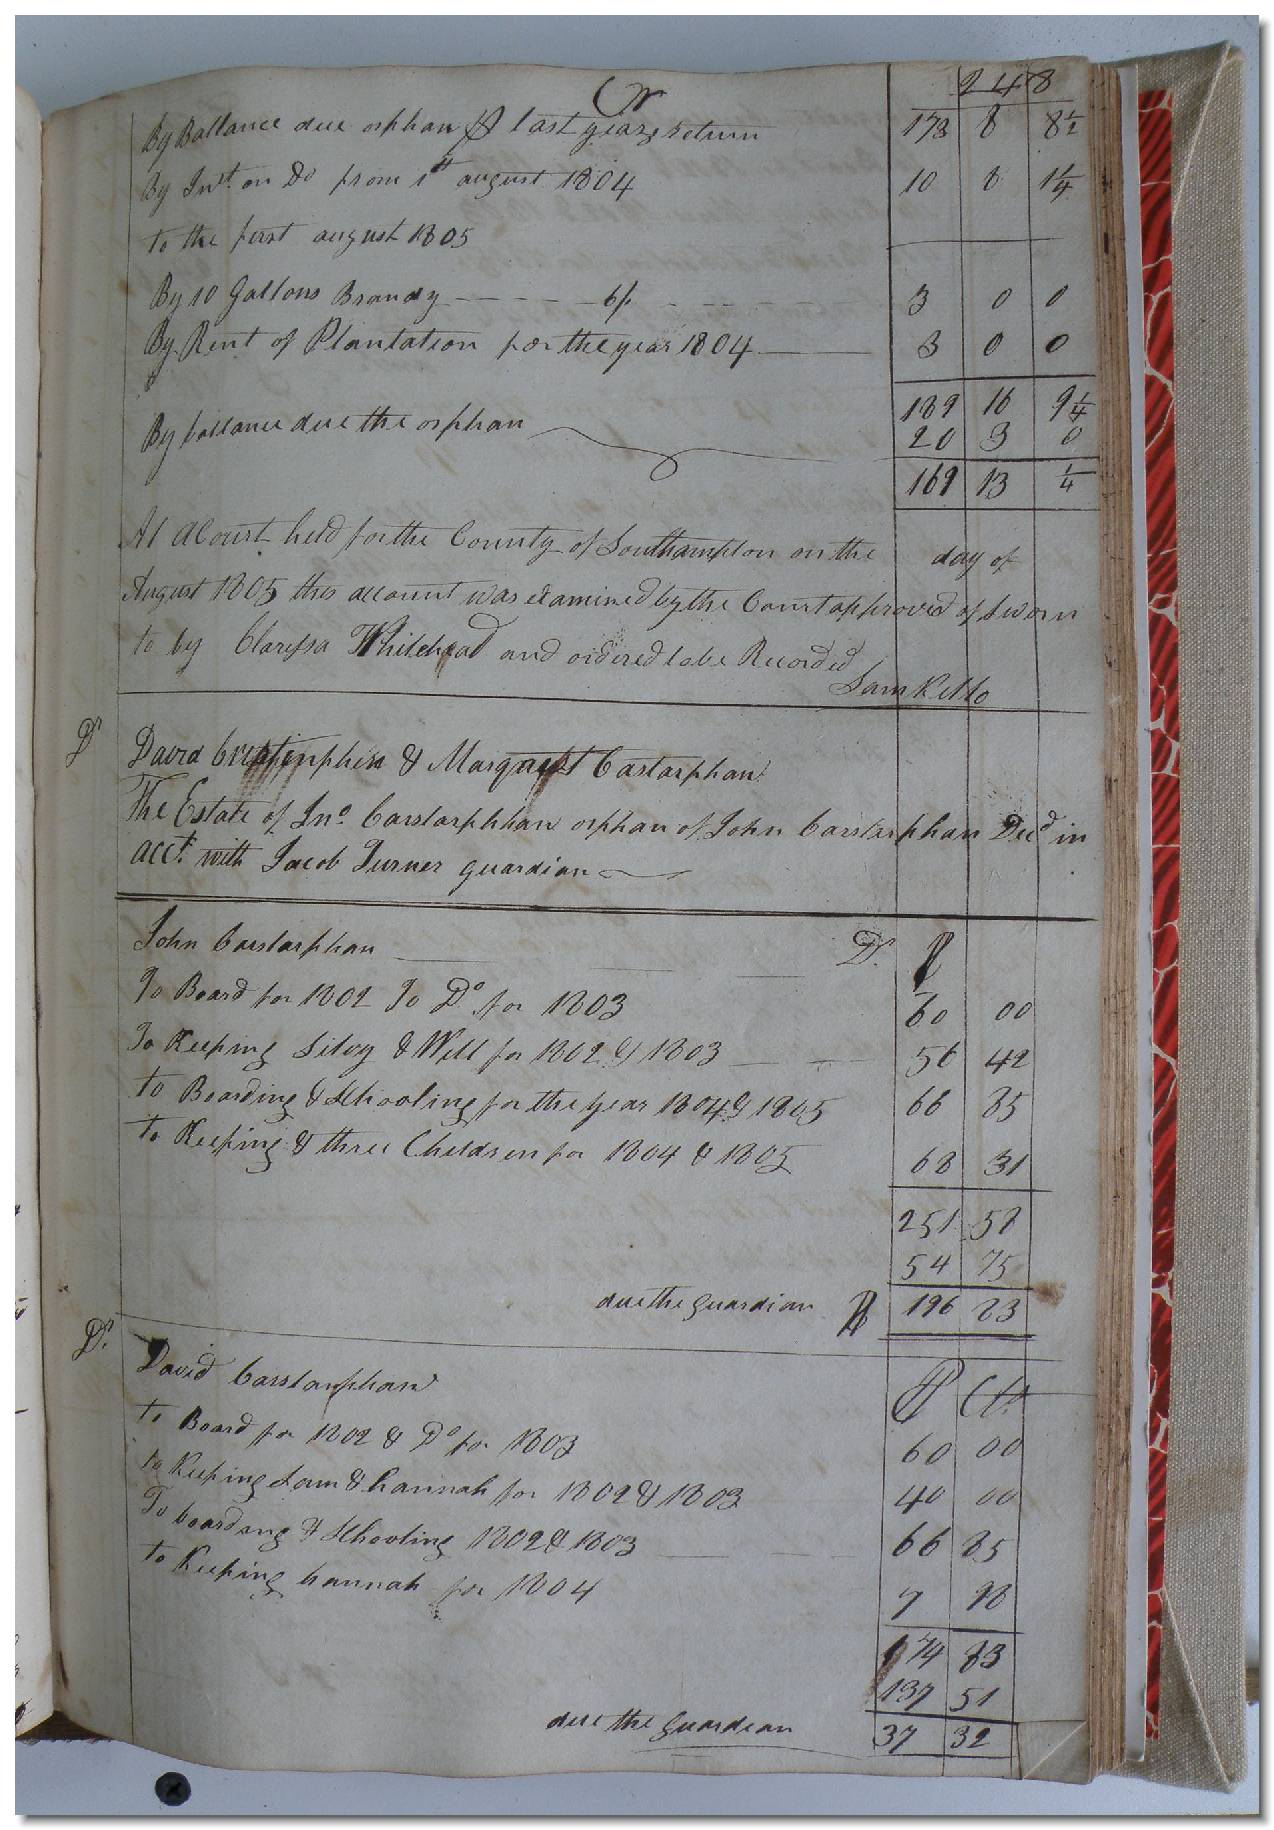 248
Cr
By Ballance due orphan ⅌ last years return 173 8 8½
By Int. on Do from 1st august 1804 10 8 1¼
to the first august 1805
By 10 Gallons Brandy 6/. 3 0 0
By Rent of Plantation for the year 1804 3 0 0
189 16 9¼
By ballance due the orphan 20 3 0
169 13 ¼
At a Court held for the County of Southampton on the day of
August 1805 this account was examined by the Court approved of sworn
to by Claryssa Whitehead and ordered to be Recorded
Sam Kello
Dr David & Margaret Carstarphan
The Estate of Jno. Carstarphhan orphan of John Carstarphan Decd in
acct. with Jacob Turner guardian
John Carstarphan Dr.
To Board for 1802 To Do. for 1803 60 00
To Keeping Silvy & Will for 1802 & 1803 56 42
to Boarding & Schooling for the year 1804 & 1805 66 85
to Keeping & three Children for 1804 & 1805 68 31
251 58
54 75
due the guardian 196 83
Dr. David Carstarphan Cts.
to Board for 1802 & Do for 1803 60 00
to Keeping Sam & hannah for 1802 & 1803 40 00
To boarding & Schooling 1802 & 1803 66 85
to Keeping hannah for 1804 7 98
174 83
137 51
due the guardian 37 32